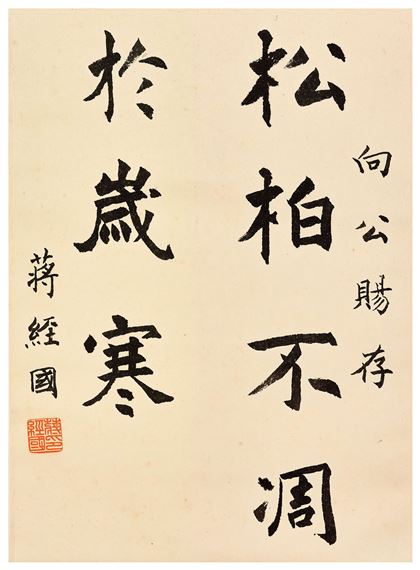 向公賜存
松柏不凋
於歲寒
蔣經國
蔣經國印